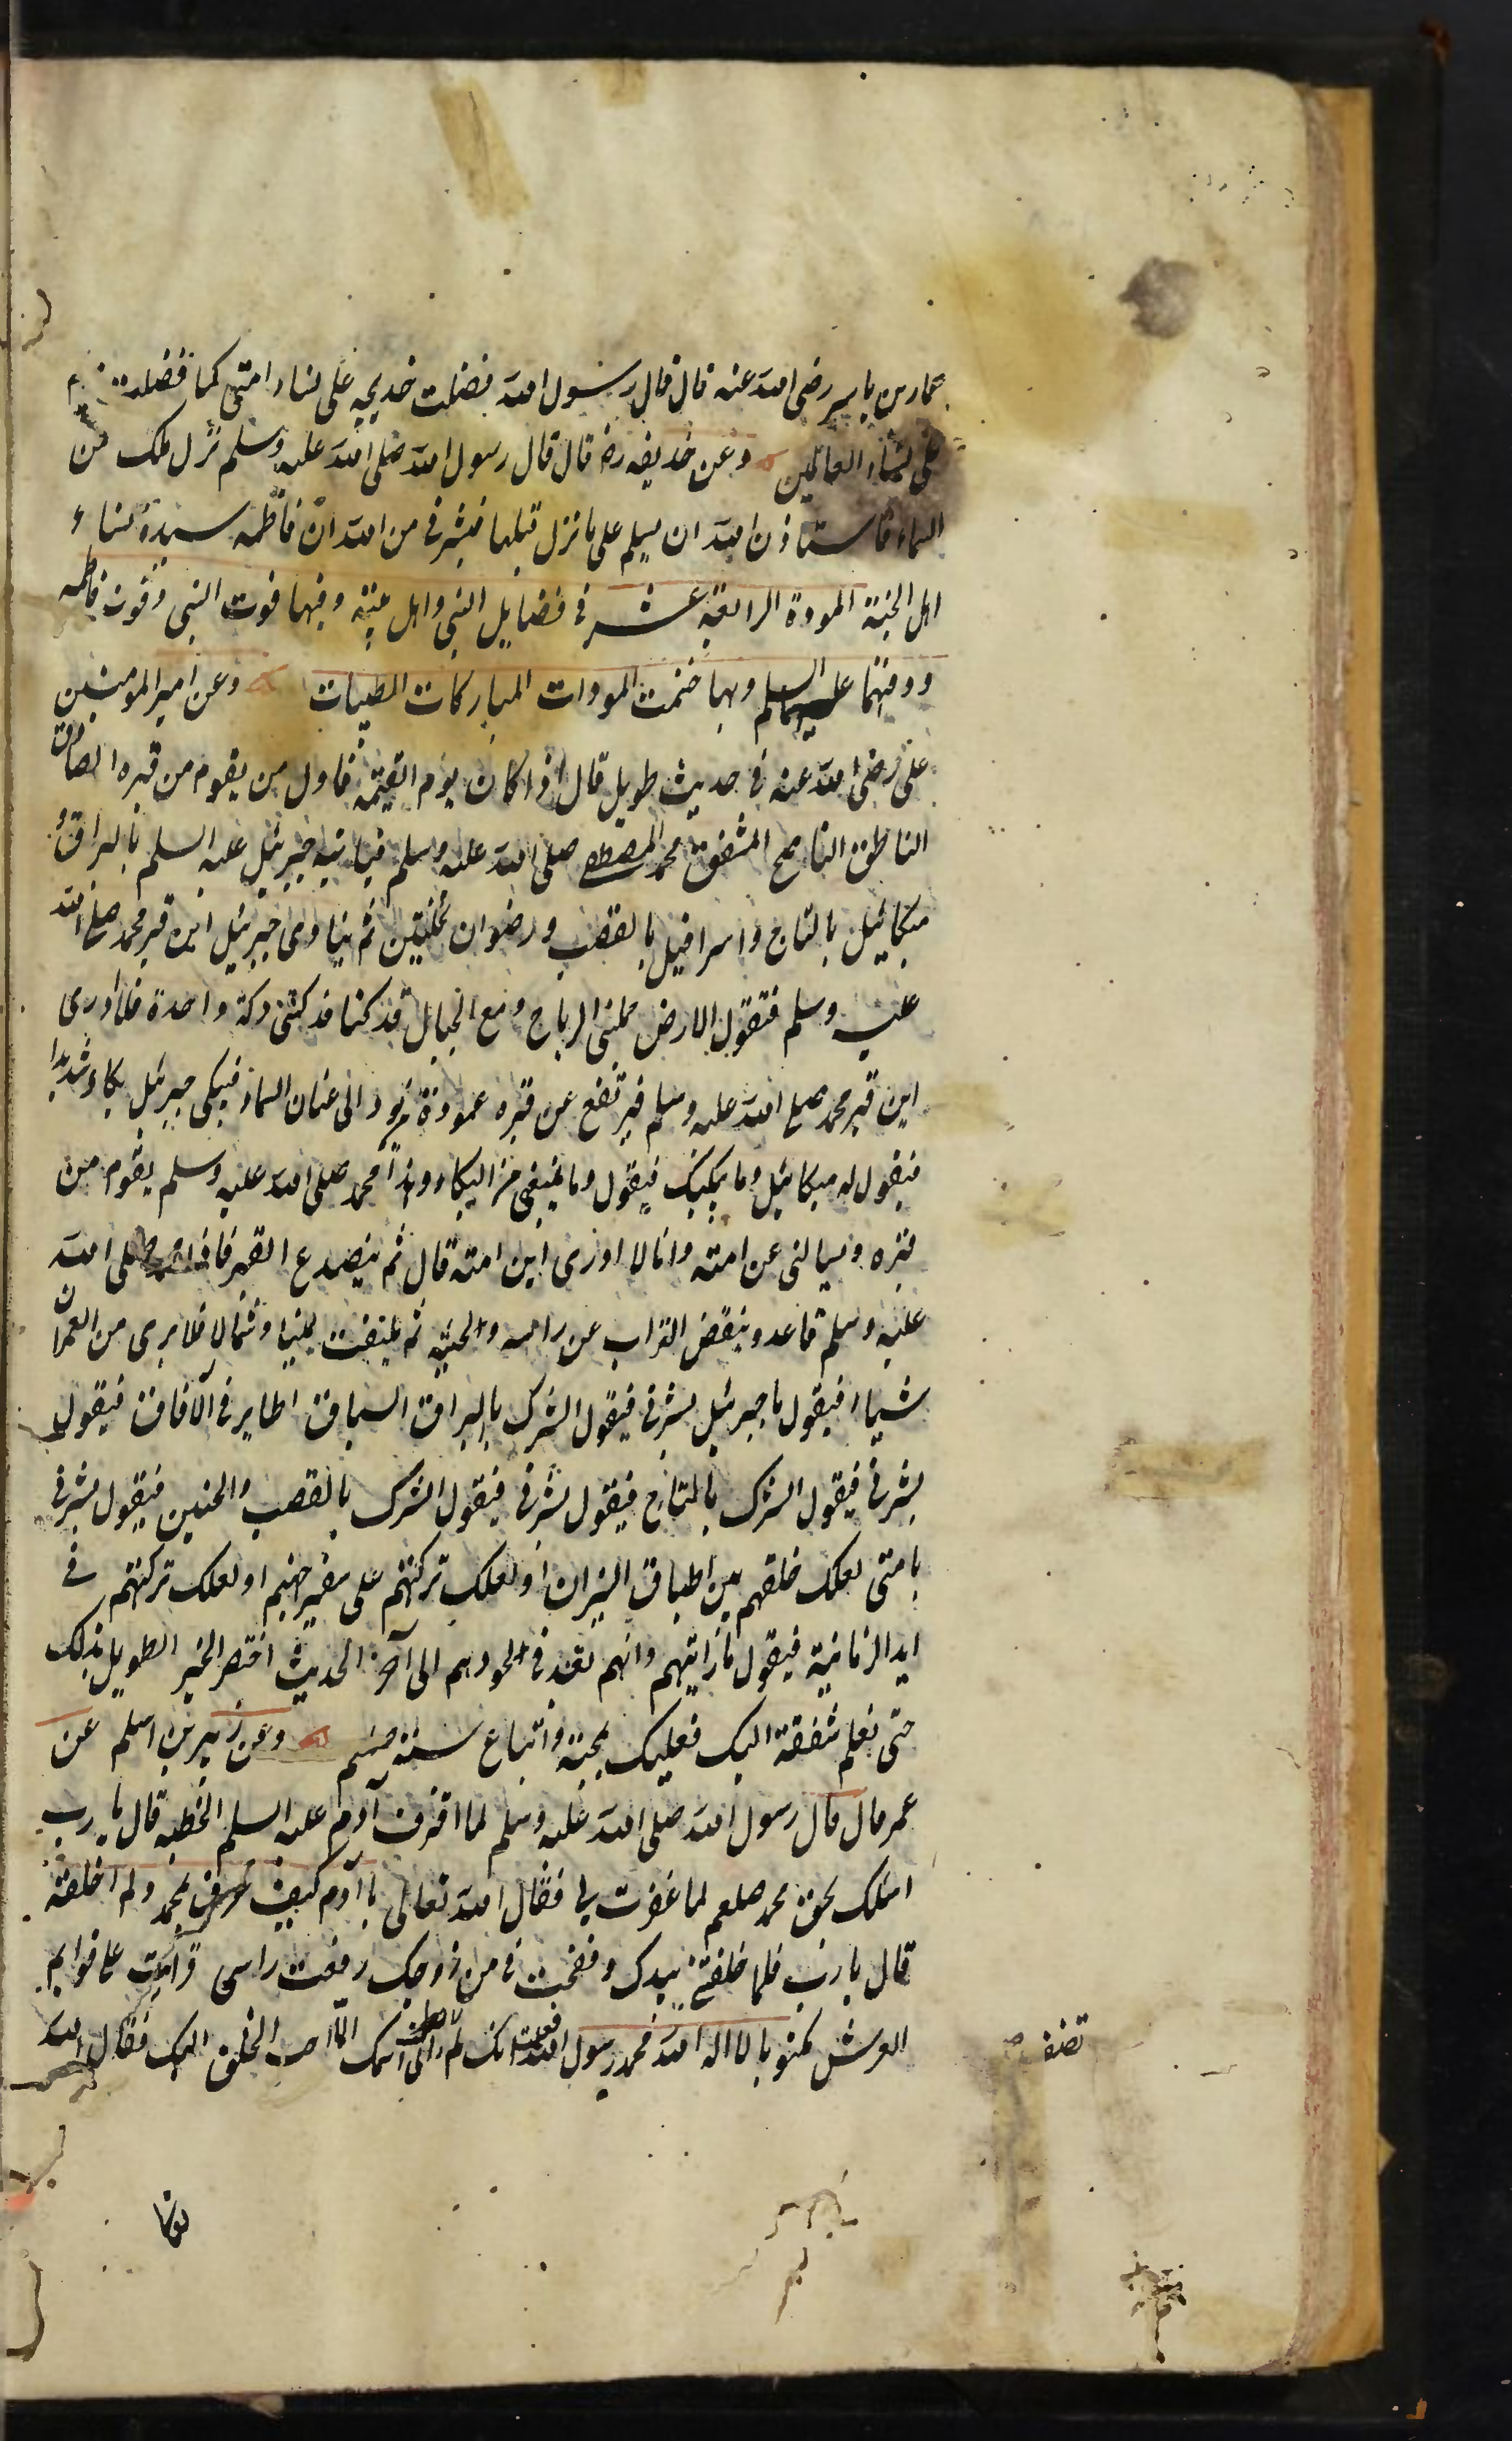 عمار بن ياسر رضى الله عنه قال قال رسول الله فضلت خديجه على نساء امتى كما فضلت مريم
على نساء العالمين وعن حذيفه رض قال قال رسول الله صلى الله عليه وسلم نزل ملك من
السماء فاستاذن الله ان يسلم على ما نزل قبلها فبشرنى من الله ان فاطمه سيدة نساء
اهل الجنة المودة الرابعة عشر فى فضايل النبى واهل بيته وفيها فوت النبى وفوت فاطمه
ودفنهما عليهما السلم وبها ختمت المودات المباركات الطيبات وعن امير المومنين
على رضى الله عنه فى حديث طويل قال اذا كان يوم القيمة فاول من يقوم من قبره الصادق
الناطق الناصح المشفق محمد المصطفى صلى الله عليه وسلم فياتيه جبرئيل عليه السلم بالبراق و
ميكائيل بالتاج واسرافيل بالقضب ورضوان بحلتين ثم ينادى جبرئيل اين قبر محمد صلى الله
عليه وسلم فتقول الارض حملتنى الرياح ومع الجبال قد كنا فدكتنى دكة واحدة فلا ادرى
اين قبر محمد صلى الله عليه وسلم فيرتفع عن قبره عمودة نور الى عنان السماء فيبكى جبرئيل بكاء شديدا
فيقول له ميكائيل وما يبكيك فيقول وما يمنعنى من البكاء وهذا محمد صلى الله عليه وسلم يقوم من
قبره ويسالنى عن امته وانا لا ادرى اين امته قال ثم ينصدع القبر فاذا محمد صلى الله
عليه وسلم قاعد وينفض التراب عن راسه ولحيته ثم يلتفت يمينا وشمالا فلا يرى من العمران
شيئا فيقول يا جبرئيل بشرنى فيقول ابشرك بالبراق السباق الطاير فى الآفاق فيقول
بشرنى فيقول ابشرك بالتاج فيقول بشرنى فيقول ابشرك بالقضب والحلتين فيقول بشرنى
بامتى لعلك خلقتهم بين اطباق النيران او لعلك تركتهم على شفير جهنم او لعلك تركتهم فى
ايد الزبانية فيقول ما رايتهم وانهم بعد فى لحودهم الى آخر الحديث اختصر الخبر الطويل بذلك
حتى تعلم شفقته اليك فعليك بحبته واتباع سنته وعن زيد بن اسلم عن
عمر قال قال رسول الله صلى الله عليه وسلم لما اقترف آدم عليه السلم الخطيه قال يا رب
اسئلك بحق محمد صلعم لما غفرت لى فقال الله تعالى يا آدم كيف تعرف محمد ولم اخلقه
قال يارب فلما خلقتنى بيدك ونفخت فى من روحك رفعت راسى فرايت على قوايم
العرش مكتوبا لا اله الا الله محمد رسول الله فعلمت انك لم تضف الى اسمك الا احب الخلق اليك فقال الله
تضف